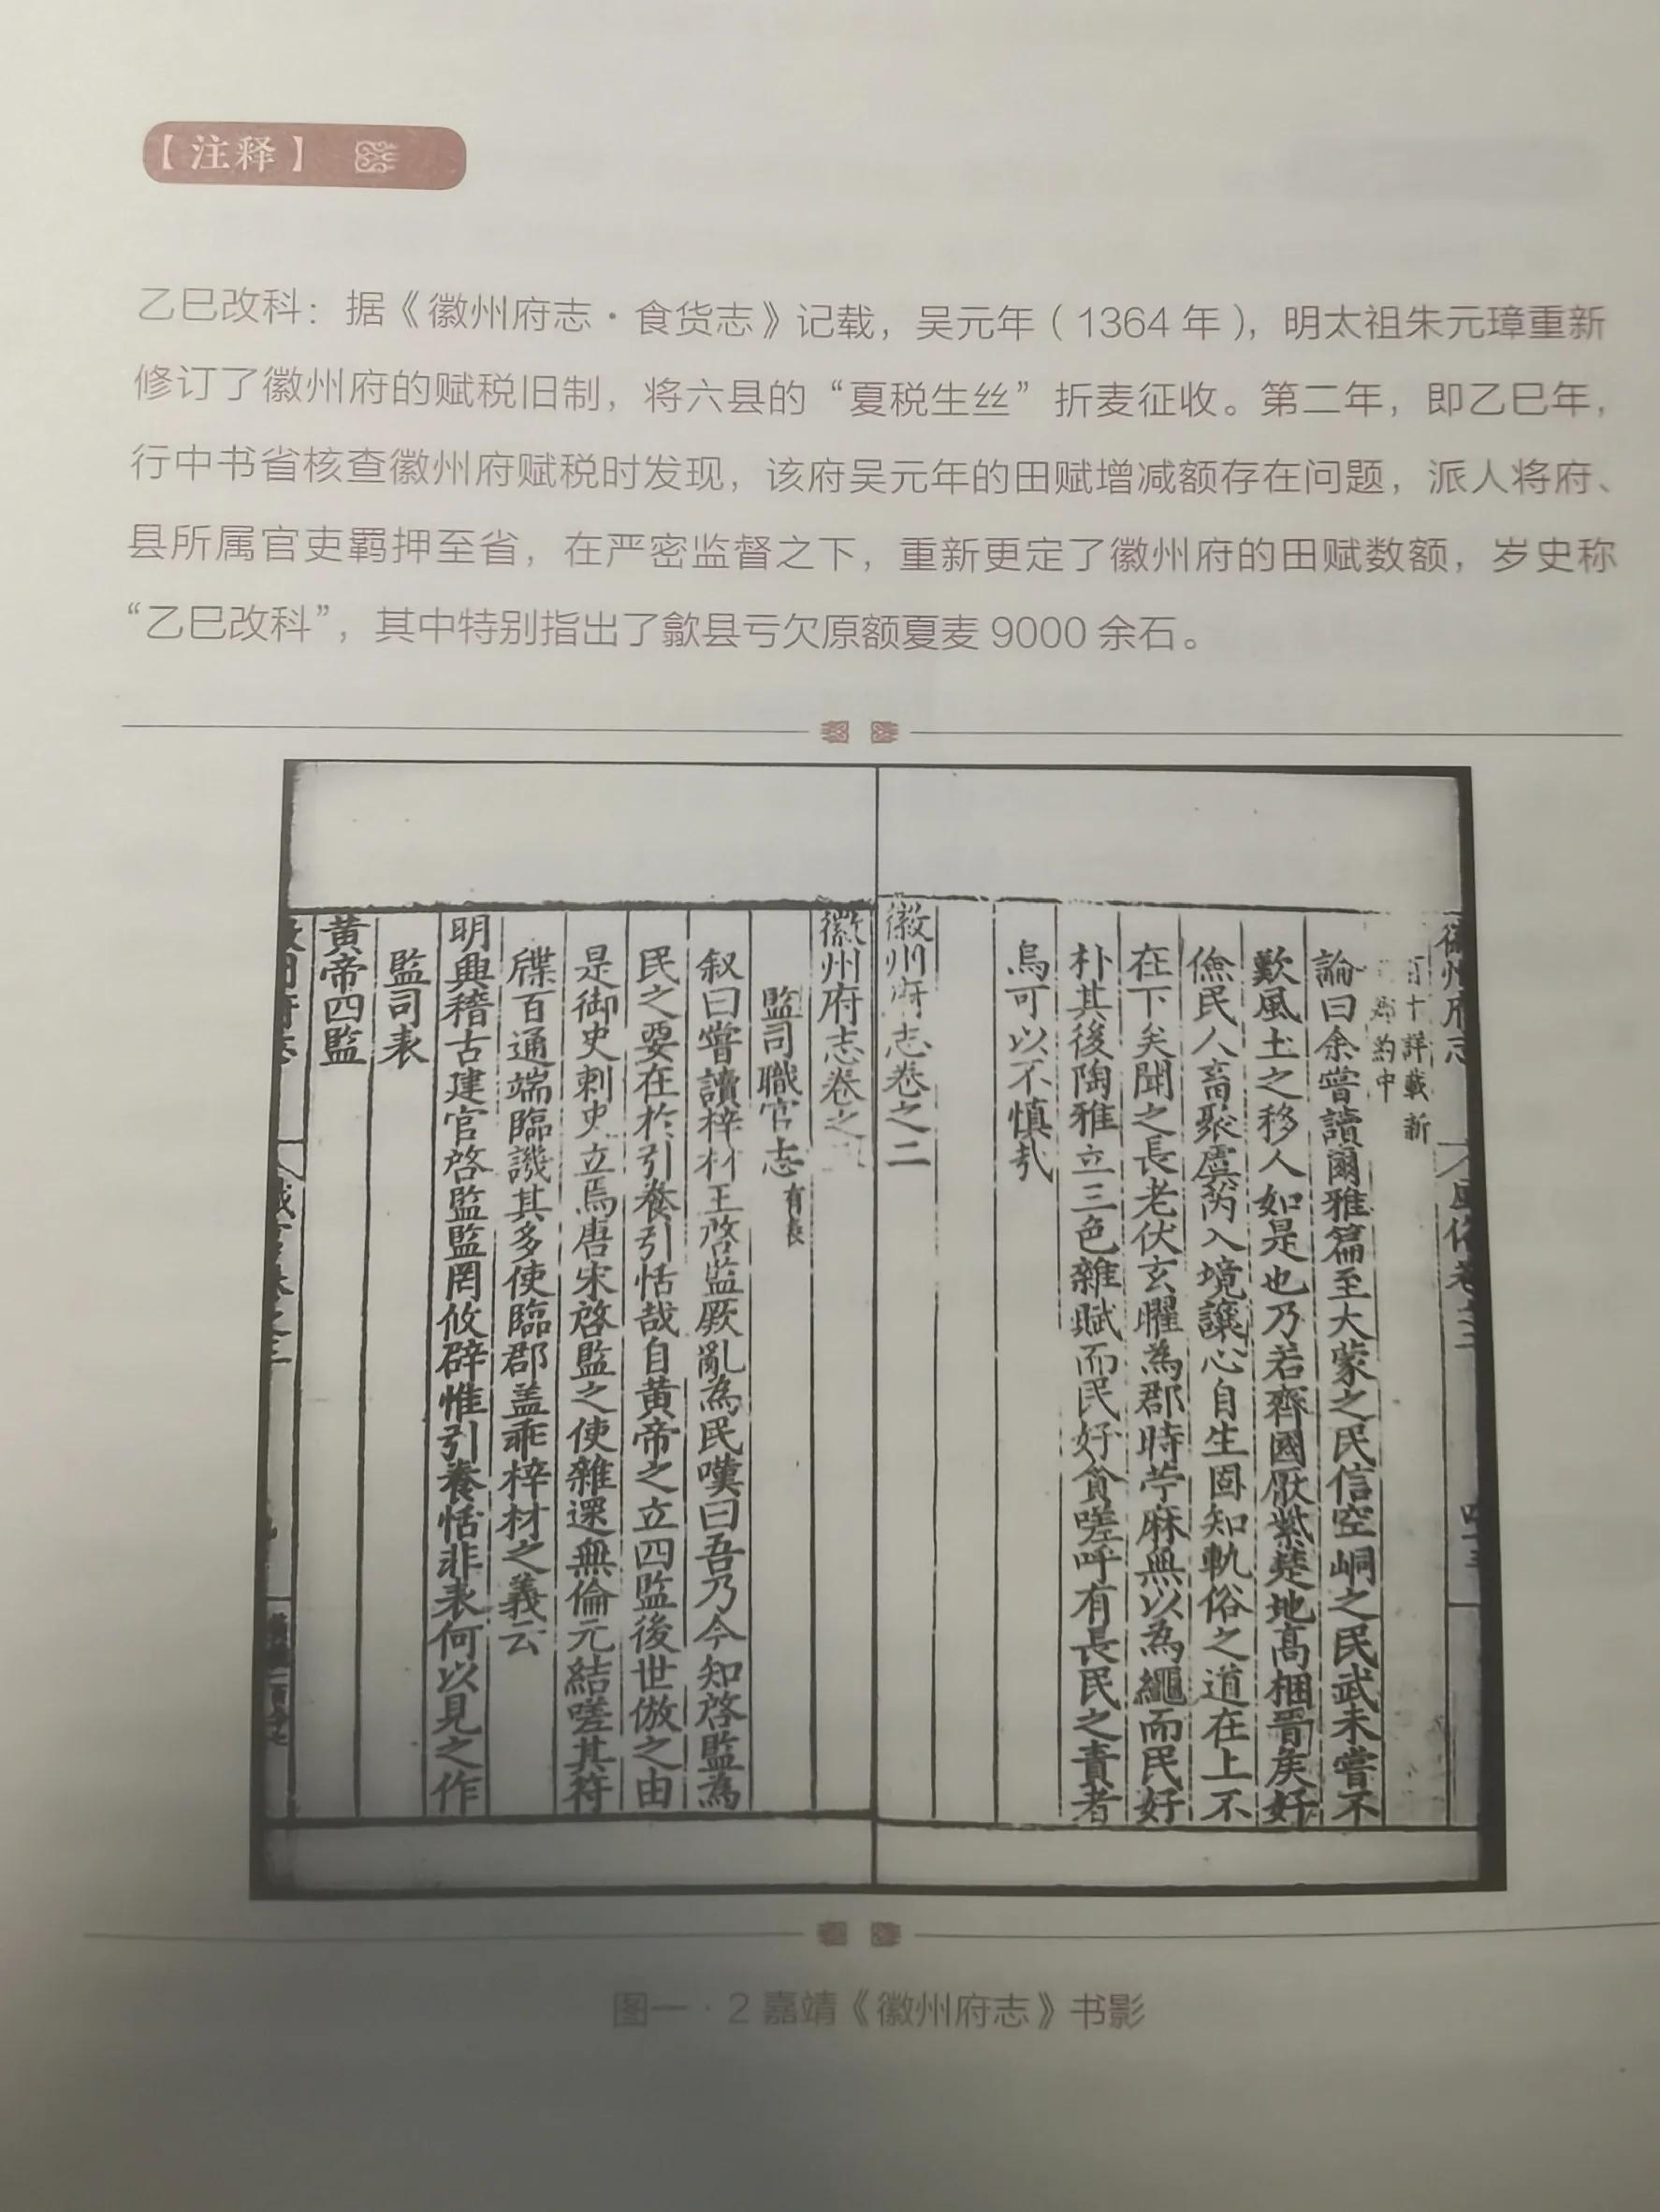 【注释】
乙巳改科：据《徽州府志·食货志》记载，吴元年（1364 年），明太祖朱元璋重新
修订了徽州府的赋税旧制，将六县的“夏税生丝”折麦征收。第二年，即乙巳年，
行中书省核查徽州府赋税时发现，该府吴元年的田赋增减额存在问题，派人将府、
县所属官吏羁押至省，在严密监督之下，重新更定了徽州府的田赋数额，岁史称
“乙巳改科”，其中特别指出了歙县亏欠原额夏麦 9000 余石。
徽州府志
風俗卷之二
十詳載新
約中
論曰余嘗讀爾雅篇至大蒙之民信空峒之民武未嘗不
歎風土之移人如是也乃若齊國厭紫楚地高梱晉矦好
儉民人畜聚虞芮入境讓心自生固知軌俗之道在上不
在下矣聞之長老伏玄曜為郡時苧麻無以為繩而民好
朴其後陶雅立三色雜賦而民好貧嗟呼有長民之責者
烏可以不慎㢤
徽州府志卷之二
徽州府志卷之
監司職官志 有表
叙曰嘗讀梓材王啓監厥亂為民嘆曰吾乃今知啓監為
民之要在於引養引恬哉自黄帝之立四監後世倣之由
是御史刺史立焉唐宋啓監之使雜還無倫元結嗟其符
牒百通端臨譏其多使臨郡盖乖梓材之義云
明興稽古建官啓監監罔攸辟惟引養恬非表何以見之作
監司表
黄帝四監
图一·2 嘉靖《徽州府志》书影